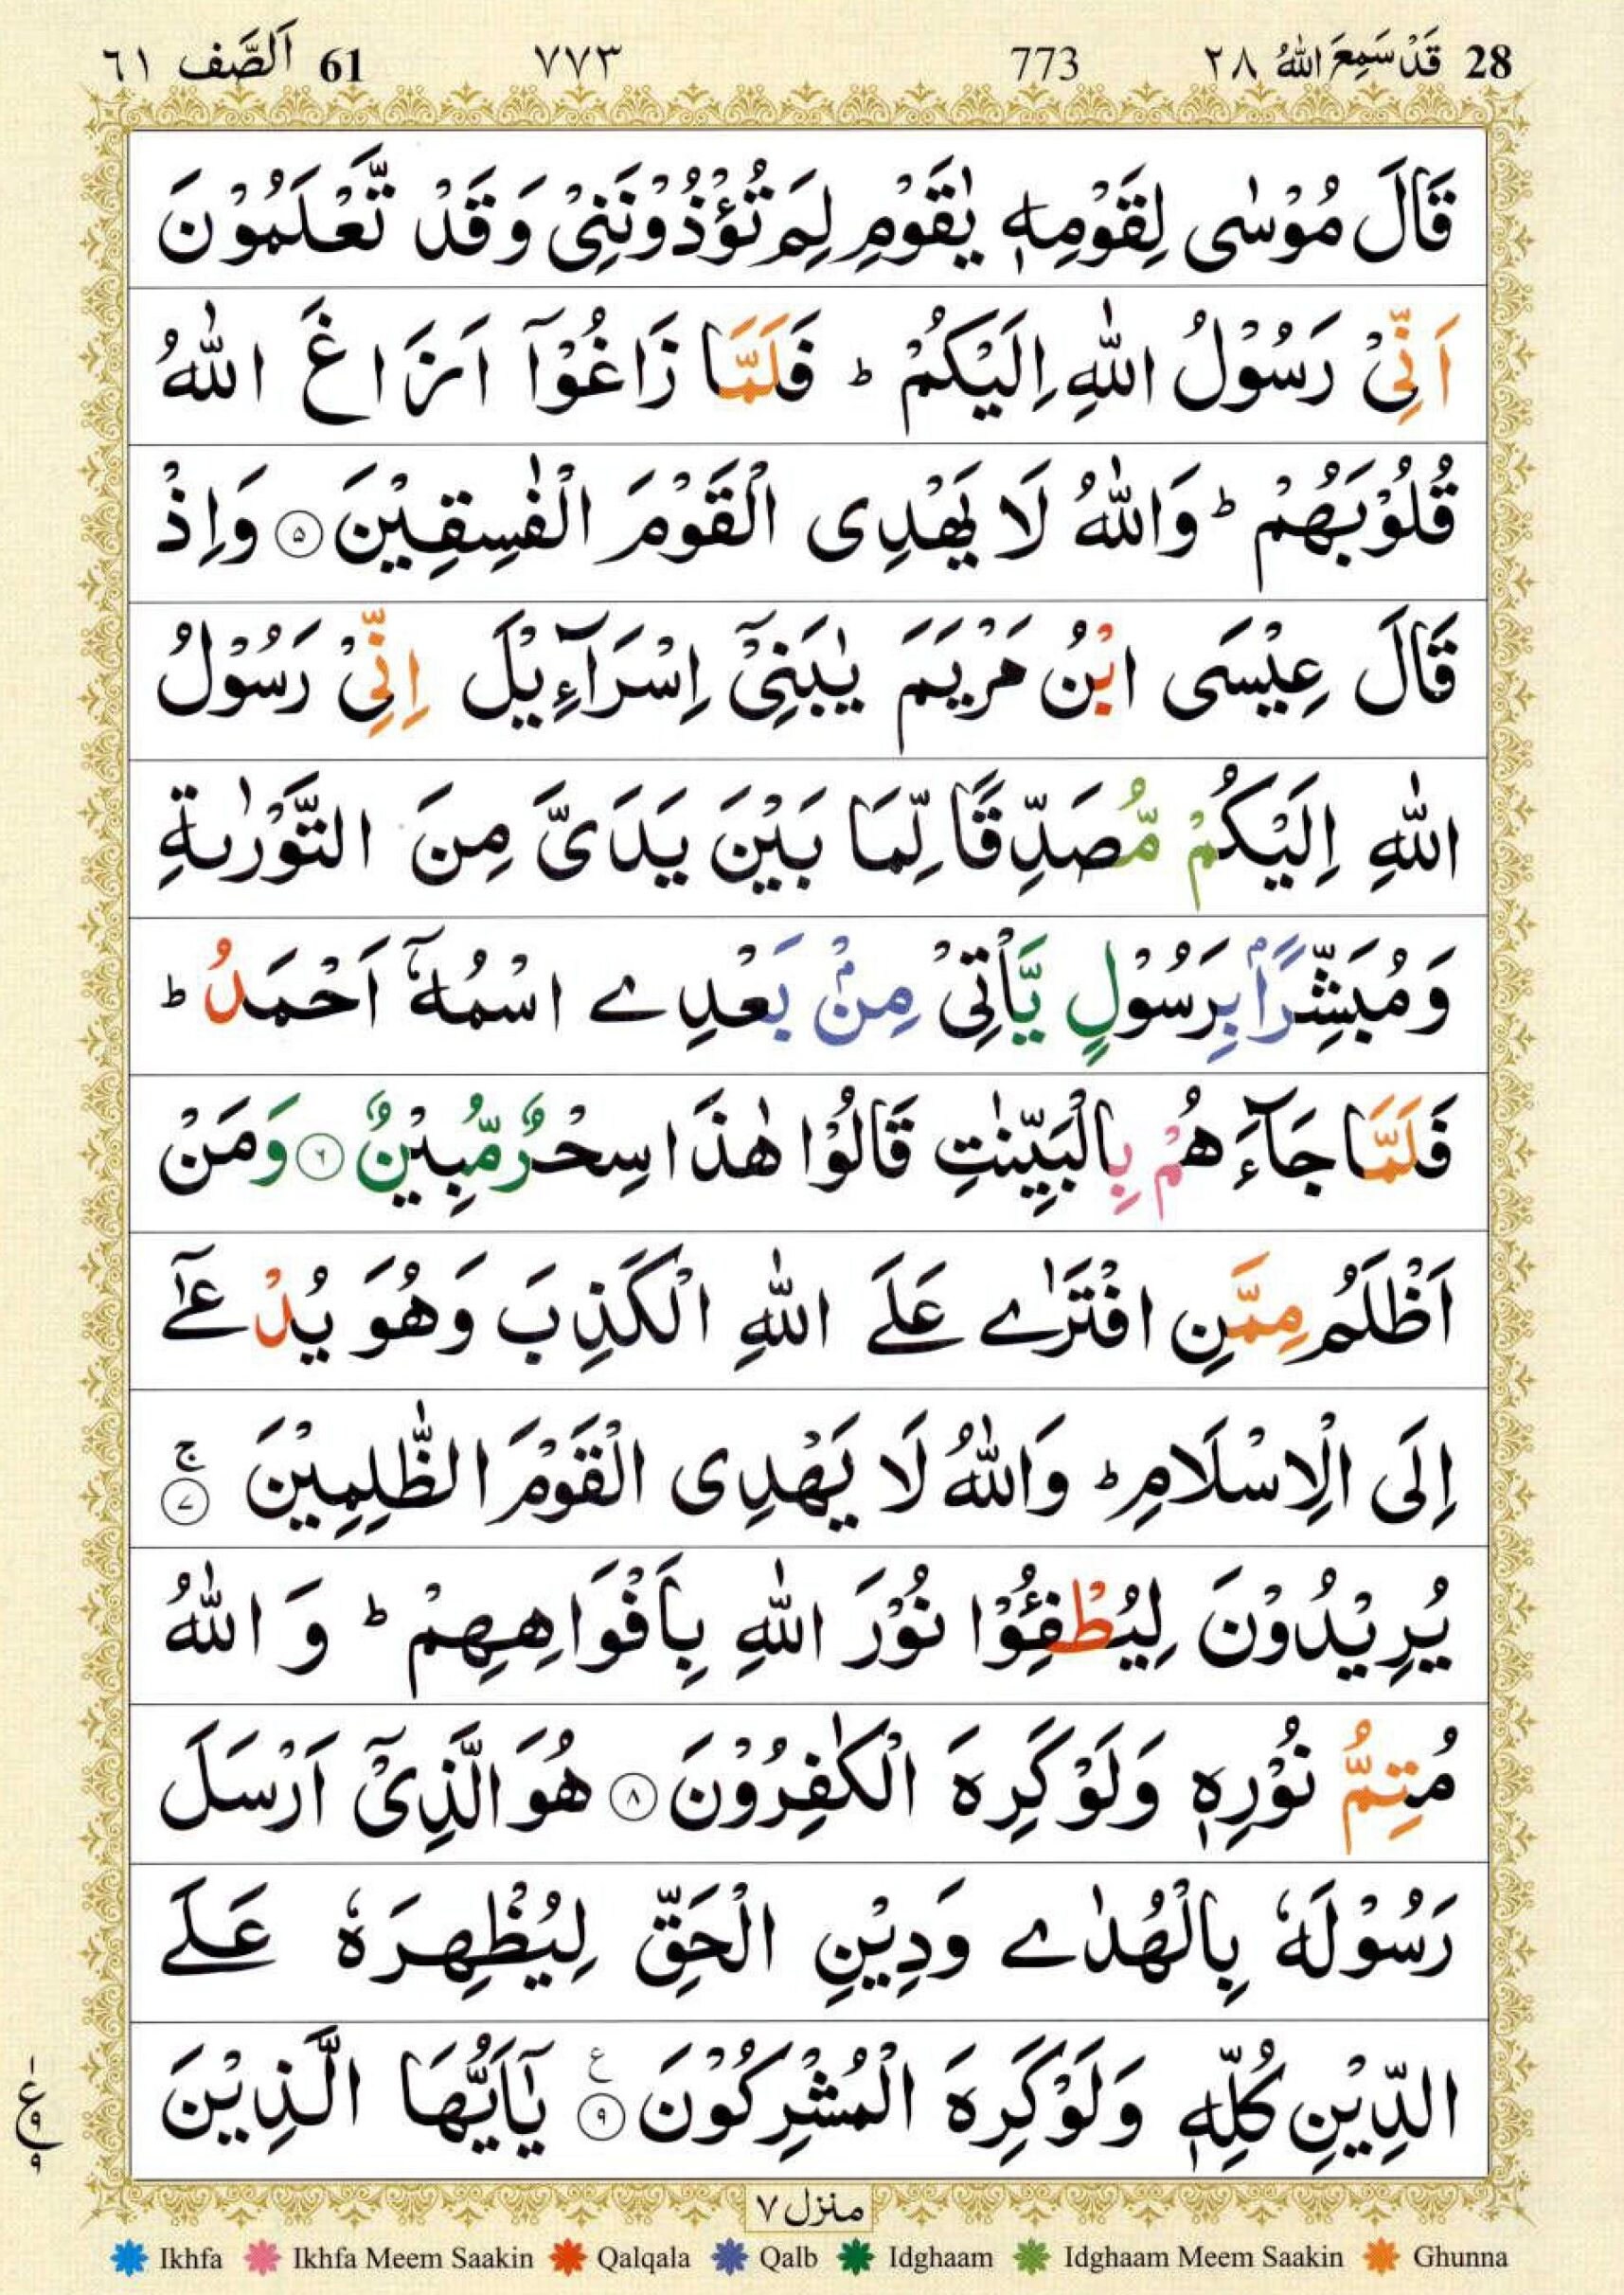 28 قَدْ سَمِعَ اللّٰهُ ٢٨ 773 ٧٧٣ 61 اَلصَّف ٦١
قَالَ مُوْسٰى لِقَوْمِهٖ يٰقَوْمِ لِمَ تُؤْذُوْنَنِىْ وَقَدْ تَّعْلَمُوْنَ
اَنِّىْ رَسُوْلُ اللّٰهِ اِلَيْكُمْ ؕ فَلَمَّا زَاغُوْٓا اَزَاغَ اللّٰهُ
قُلُوْبَهُمْ ؕ وَاللّٰهُ لَا يَهْدِى الْقَوْمَ الْفٰسِقِيْنَ ۵ وَاِذْ
قَالَ عِيْسَى ابْنُ مَرْيَمَ يٰبَنِىْٓ اِسْرَآءِيْلَ اِنِّىْ رَسُوْلُ
اللّٰهِ اِلَيْكُمْ مُّصَدِّقًا لِّمَا بَيْنَ يَدَىَّ مِنَ التَّوْرٰىةِ
وَمُبَشِّرًاۢ بِرَسُوْلٍ يَّاْتِىْ مِنْۢ بَعْدِے اسْمُهٗٓ اَحْمَدُ ؕ
فَلَمَّا جَآءَهُمْ بِالْبَيِّنٰتِ قَالُوْا هٰذَا سِحْرٌ مُّبِيْنٌ ۶ وَمَنْ
اَظْلَمُ مِمَّنِ افْتَرٰے عَلَے اللّٰهِ الْكَذِبَ وَهُوَ يُدْعٰٓے
اِلَى الْاِسْلَامِ ؕ وَاللّٰهُ لَا يَهْدِى الْقَوْمَ الظّٰلِمِيْنَ ۚ ۷
يُرِيْدُوْنَ لِيُطْفِئُوْا نُوْرَ اللّٰهِ بِاَفْوَاهِهِمْ ؕ وَ اللّٰهُ
مُتِمُّ نُوْرِهٖ وَلَوْ كَرِهَ الْكٰفِرُوْنَ ۸ هُوَ الَّذِىْٓ اَرْسَلَ
رَسُوْلَهٗ بِالْهُدٰے وَدِيْنِ الْحَقِّ لِيُظْهِرَهٗ عَلَے
الدِّيْنِ كُلِّهٖ وَلَوْ كَرِهَ الْمُشْرِكُوْنَ ع ۹ يٰٓاَيُّهَا الَّذِيْنَ
١ ع ۹ ۹
منزل ٧
Ikhfa Ikhfa Meem Saakin Qalqala Qalb Idghaam Idghaam Meem Saakin Ghunna